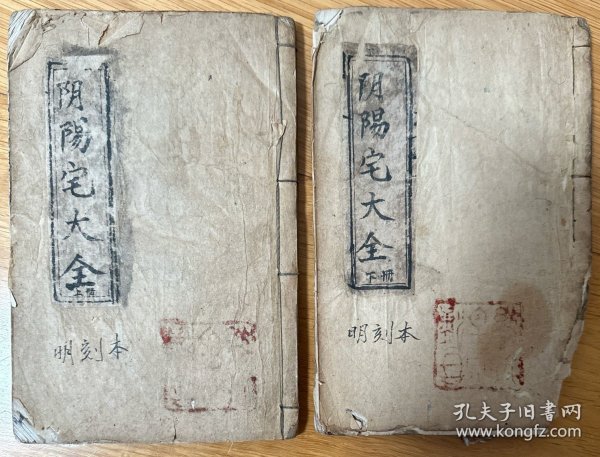 阴陽宅大全
上冊
明刻本
阴陽宅大全
下冊
明刻本
孔夫子旧书网
www.kongfz.com